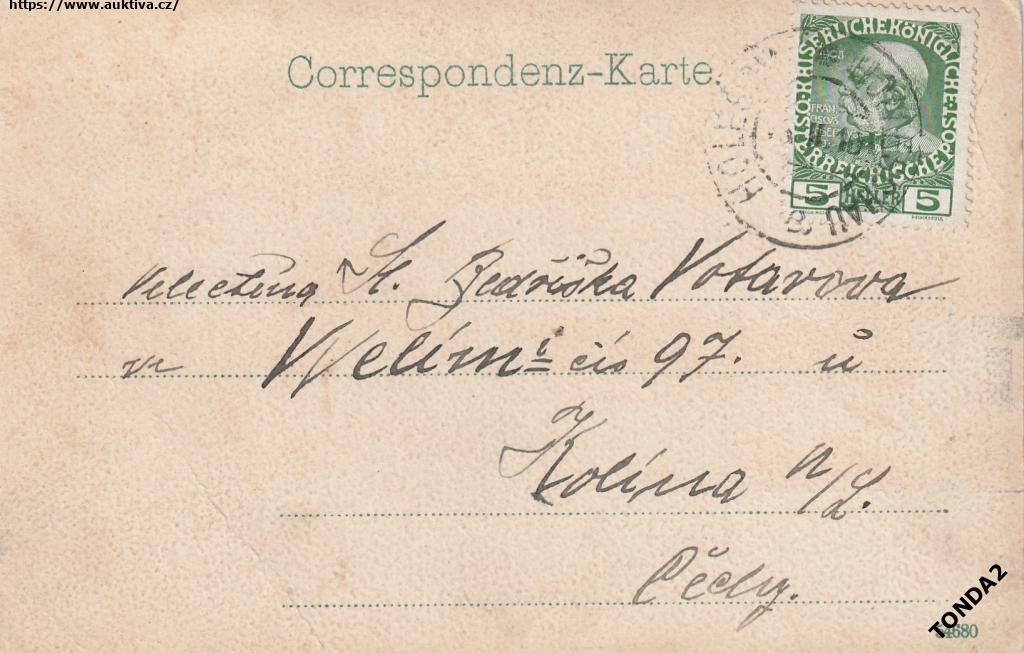 https://www.auktiva.cz/
Correspondenz-Karte.
KAISERLICHEKÖNIGLICHE ÖSTERREICHISCHE POST
FRAN
CISCVS
5 HELLER 5
HOLE
Velectěná Sl. Bedřiška Votavova
ve Velímě čís 97. ů
Kolína n/L.
Čechy.
TONDA2
4680